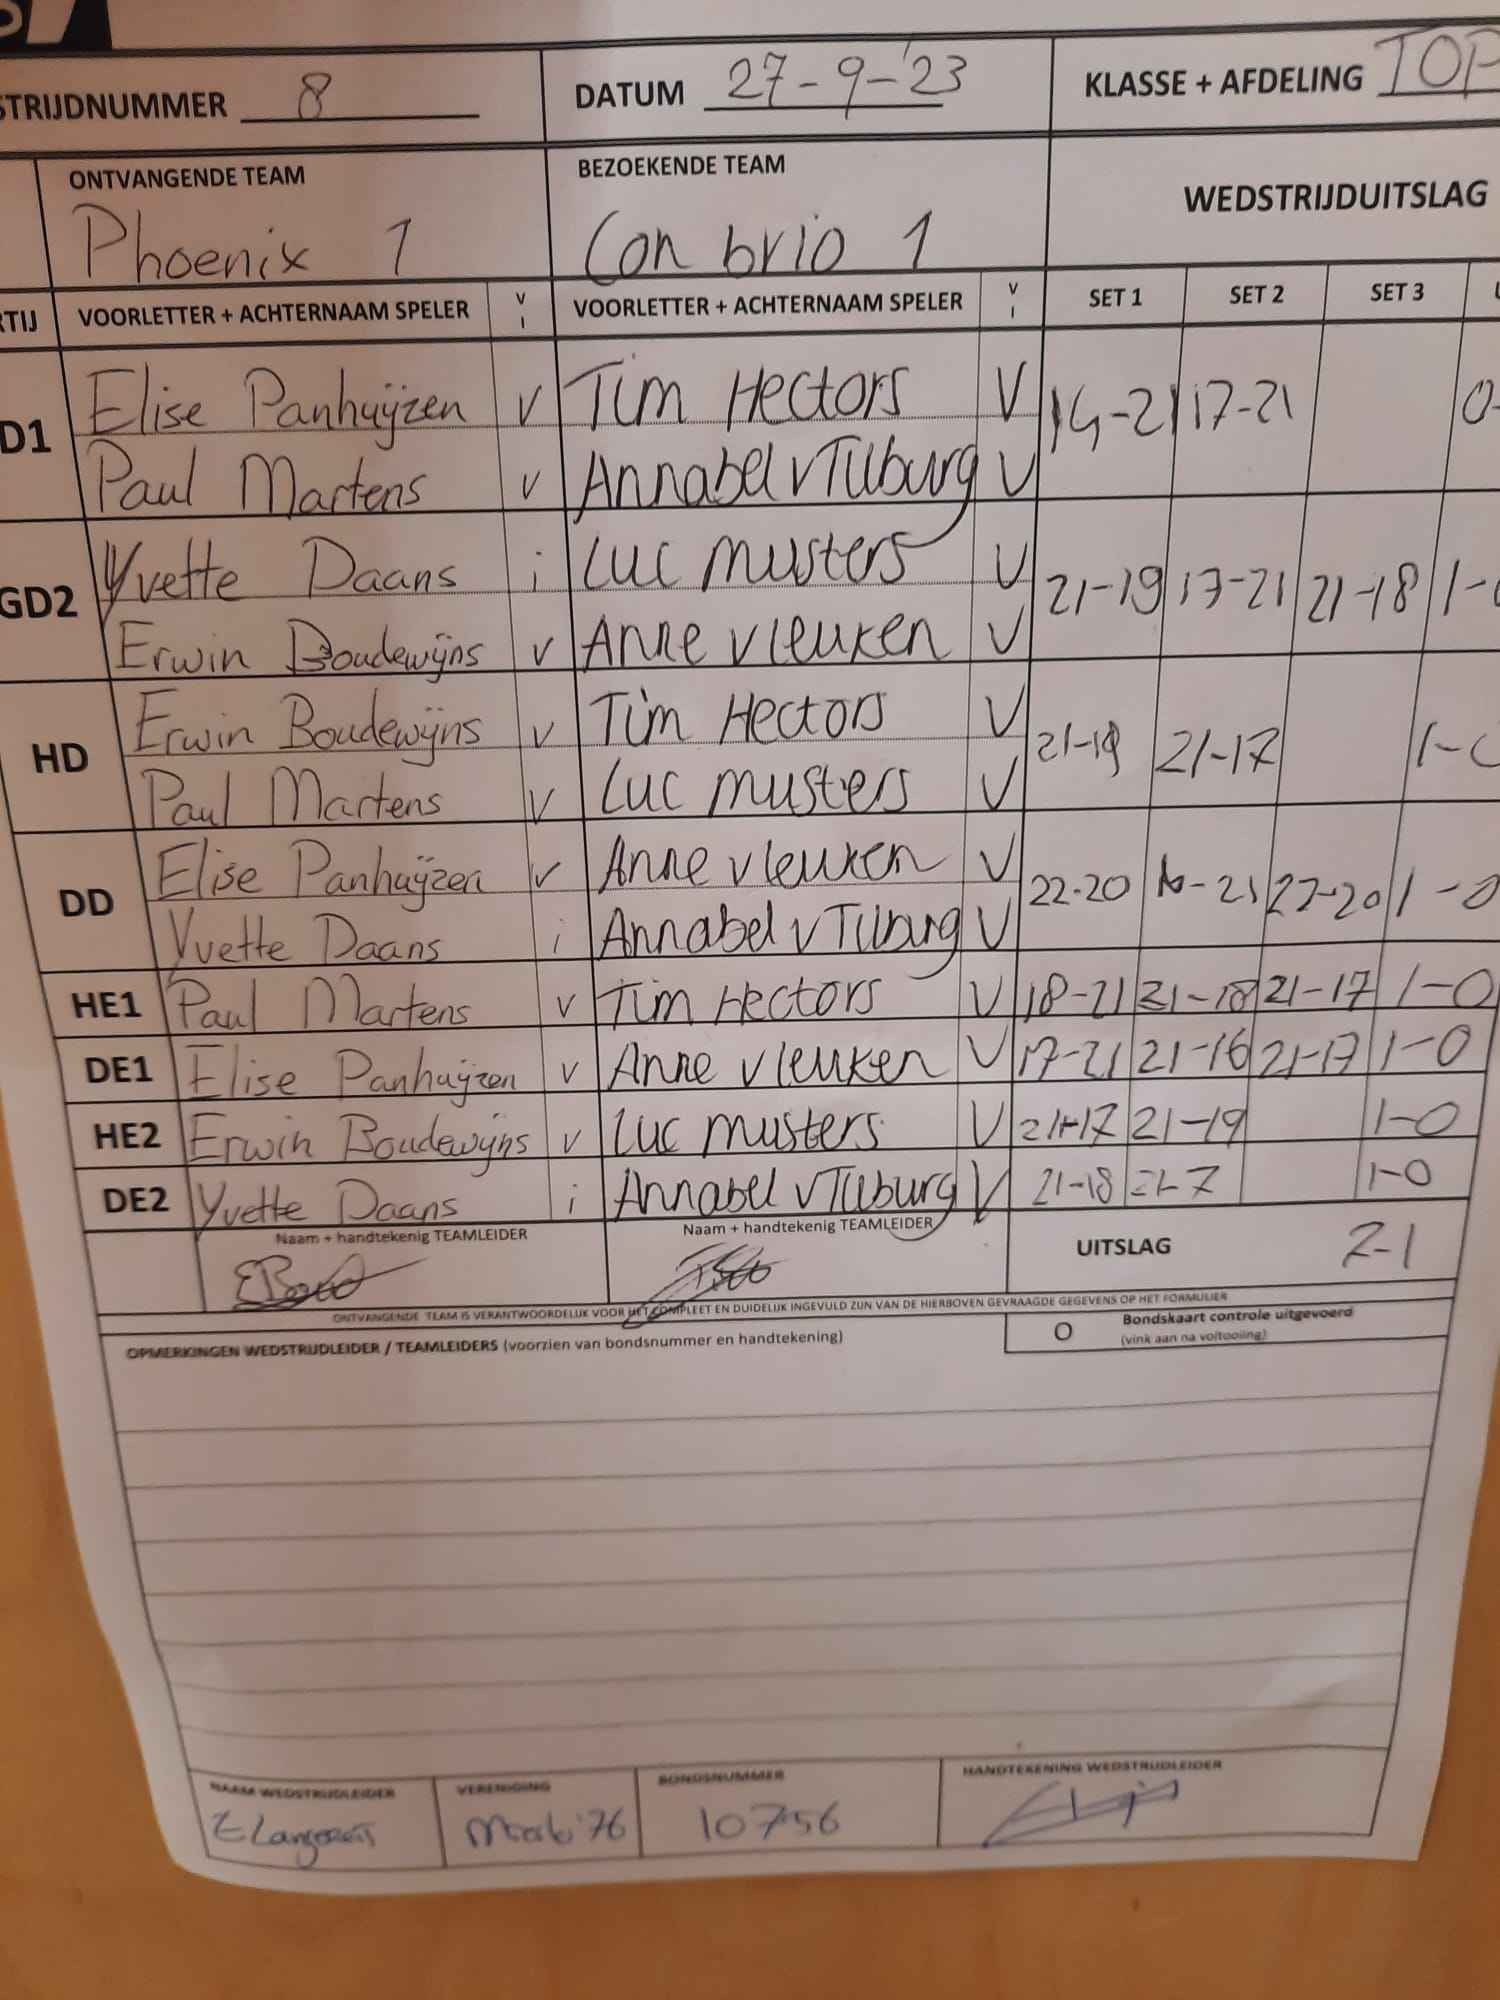 STRIJDNUMMER 8 DATUM 27-9-'23 KLASSE + AFDELING TOP
ONTVANGENDE TEAM BEZOEKENDE TEAM WEDSTRIJDUITSLAG
Phoenix 1 Con brio 1
TIJ VOORLETTER + ACHTERNAAM SPELER V I VOORLETTER + ACHTERNAAM SPELER V I SET 1 SET 2 SET 3
D1 Elise Panhuijzen v Tim Hectors V 14-21 17-21 0-
Paul Martens v Annabel v Tilburg V
GD2 Yvette Daans i Luc Musters V 21-19 17-21 21-18 1-0
Erwin Boudewijns v Anne Vleuken V
HD Erwin Boudewijns v Tim Hectors V 21-19 21-17 1-0
Paul Martens v Luc Musters V
DD Elise Panhuijzen v Anne Vleuken V 22-20 -21 22-20 1-0
Yvette Daans i Annabel v Tilburg V
HE1 Paul Martens v Tim Hectors V 18-21 21-18 21-17 1-0
DE1 Elise Panhuijzen v Anne Vleuken V 17-21 21-16 21-17 1-0
HE2 Erwin Boudewijns v Luc Musters V 21-17 21-19 1-0
DE2 Yvette Daans i Annabel v Tilburg V 21-18 21-7 1-0
Naam + handtekenig TEAMLEIDER Naam + handtekenig TEAMLEIDER UITSLAG 7-1
ONTVANGENDE TEAM IS VERANTWOORDELIJK VOOR HET COMPLEET EN DUIDELIJK INGEVULD ZIJN VAN DE HIERBOVEN GEVRAAGDE GEGEVENS OP HET FORMULIER
O Bondskaart controle uitgevoerd
(vink aan na voltooiing)
OPMERKINGEN WEDSTRIJDLEIDER / TEAMLEIDERS (voorzien van bondsnummer en handtekening)
NAAM WEDSTRIJDLEIDER VERENIGING BONDSNUMMER HANDTEKENING WEDSTRIJDLEIDER
'76 10756